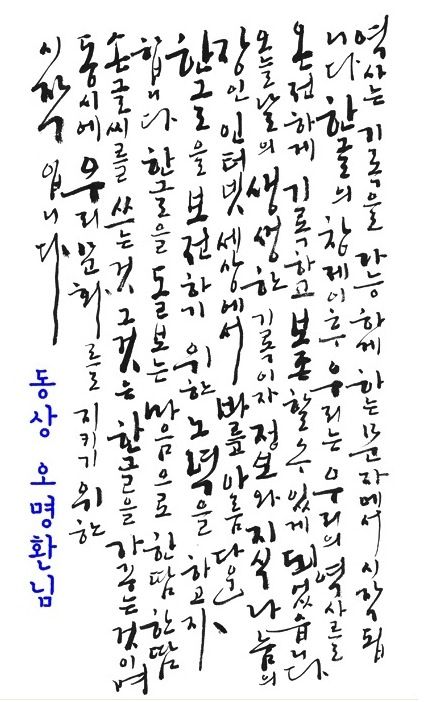 역사는 기록을 가능하게 하는 문자에서 시작됩
니다 한글의 창제이후 우리는 우리의 역사를
온전하게 기록하고 보존할 수 있게 되었습니다.
오늘날의 생생한 기록이자 정보와 지식 나눔의
장인 인터넷 세상에서 아름다운
한글을 보전하기 위한 노력을 하고자
합니다. 한글을 돌보는 마음으로 한땀 한땀
손글씨를 쓰는것 그것은 한글을 가꾸는 것이며
동시에 우리문화를 지키기 위한
시작입니다
동상 오명환님